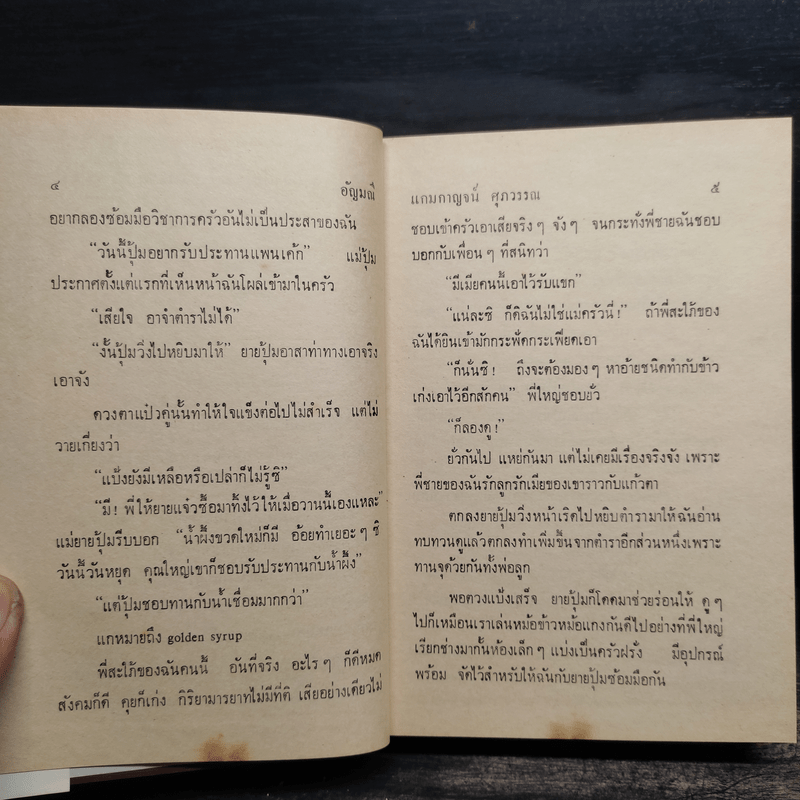 ๔ อัญมณี
อยากลองซ้อมมือวิชาการครัวอันไม่เป็นประสาของฉัน
“วันนี้ปุ้มอยากรับประทานแพนเค้ก” แม่ปุ้ม
ประกาศตั้งแต่แรกที่เห็นหน้าฉันโผล่เข้ามาในครัว
“เสียใจ อาจำตำราไม่ได้”
“งั้นปุ้มวิ่งไปหยิบมาให้” ยายปุ้มอาสาท่าทางเอาจริง
เอาจัง
ดวงตาแป๋วคู่นั้นทำให้ใจแข็งต่อไปไม่สำเร็จ แต่ไม่
วายเกี่ยงว่า
“แป้งยังมีเหลือหรือเปล่าก็ไม่รู้ซิ”
“มี! พี่ให้ยายแจ๋วซื้อมาทิ้งไว้ให้เมื่อวานนี้เองแหละ”
แม่ยายปุ้มรีบบอก “น้ำผึ้งขวดใหม่ก็มี อ้อยทำเยอะๆ ซิ
วันนี้วันหยุด คุณใหญ่เขาก็ชอบรับประทานกับน้ำผึ้ง”
“แต่ปุ้มชอบทานกับน้ำเชื่อมมากกว่า”
แกหมายถึง golden syrup
พี่สะใภ้ของฉันคนนี้ อันที่จริง อะไรๆ ก็ดีหมด
สังคมก็ดี คุยก็เก่ง กิริยามารยาทไม่มีที่ติ เสียอย่างเดียวไม่
แถมกาญจน์ ศุภวรรณ ๕
ชอบเข้าครัวเอาเสียจริงๆ จังๆ จนกระทั่งพี่ชายฉันชอบ
บอกกับเพื่อนๆ ที่สนิทว่า
“มีเมียคนนี้เอาไว้รับแขก”
“แน่ละซิ ก็ดิฉันไม่ใช่แม่ครัวนี่!” ถ้าพี่สะใภ้ของ
ฉันได้ยินเข้ามักกระฟัดกระเฟียดเอา
“ก็นั่นซิ! ถึงจะต้องมองๆ หาอ้ายชนิดทำกับข้าว
เก่งเอาไว้อีกสักคน” พี่ใหญ่ชอบยั่ว
“ก็ลองดู!”
ยั่วกันไป แหย่กันมา แต่ไม่เคยมีเรื่องจริงจัง เพราะ
พี่ชายของฉันรักลูกรักเมียของเขาราวกับแก้วตา
ตกลงยายปุ้มวิ่งหน้าเริดไปหยิบตำรามาให้ฉันอ่าน
ทบทวนดูแล้วตกลงทำเพิ่มขึ้นจากตำราอีกส่วนหนึ่งเพราะ
ทานจุด้วยกันทั้งพ่อลูก
พอตวงแป้งเสร็จ ยายปุ้มก็โดดมาช่วยร่อนให้ ดูๆ
ไปก็เหมือนเราเล่นหม้อข้าวหม้อแกงกันดีไปอย่างที่พี่ใหญ่
เรียกช่างมากั้นห้องเล็กๆ แบ่งเป็นครัวฝรั่ง มีอุปกรณ์
พร้อม จัดไว้สำหรับให้ฉันกับยายปุ้มซ้อมมือกัน